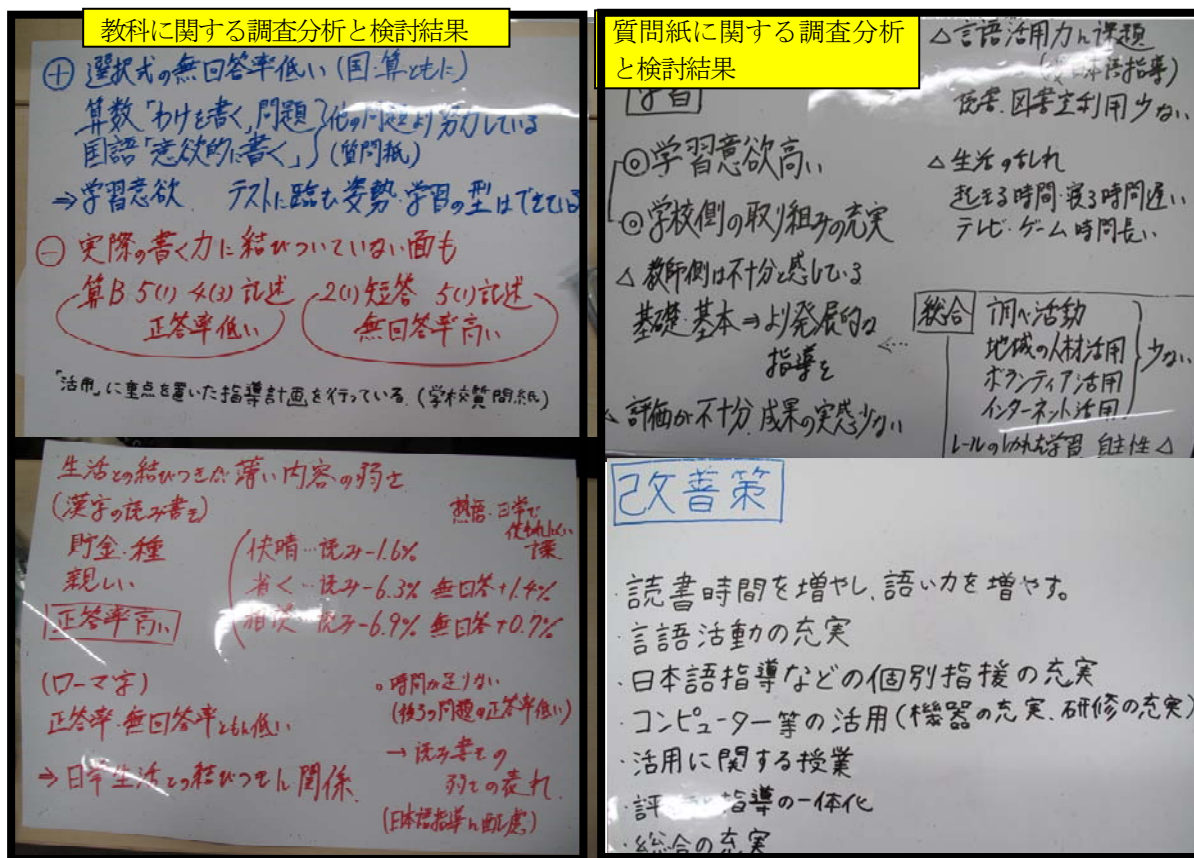 教科に関する調査分析と検討結果
⊕ 選択式の無回答率低い(国・算ともに)
算数「わけを書く」問題
国語「意欲的に書く」
他の問題より努力している
(質問紙)
⇒学習意欲 テストに臨む姿勢・学習の型はできている
⊖ 実際の書く力に結びついていない面も
算B 5(1) 4(3) 記述
正答率低い
2(1)短答 5(1)記述
無回答率高い
「活用」に重点を置いた指導計画を行っている。(学校質問紙)
生活との結びつきが薄い内容の弱さ
(漢字の読み書き)
貯金・種
親しい
正答率高い
熟語・日常で
使われにくい
言葉
快晴…読み-1.6%
省く…読み-6.3% 無回答+1.4%
相談…読み-6.9% 無回答+0.7%
(ローマ字)
正答率・無回答率ともに低い
⇒日常生活との結びつきに関係
。時間が足りない
(後ろの問題の正答率低い)
→読み書きの
弱さの表れ
(日本語指導に配慮)
質問紙に関する調査分析
と検討結果
◎学習意欲高い
◎学校側の取り組みの充実
△教師側は不十分と感じている
基礎・基本⇒より発展的な
指導を
△評価が不十分、成果の実感少ない
△言語活用力に課題
日本語指導)
読書、図書室利用少ない
△生活の乱れ
起きる時間・寝る時間遅い
テレビ・ゲーム時間長い
総合
調べ活動
地域の人材活用
ボランティア活用
インターネット活用
少ない
レールのしかれた学習 自主性△
改善策
・読書時間を増やし、語い力を増やす。
・言語活動の充実
・日本語指導などの個別指援の充実
・コンピューター等の活用(機器の充実、研修の充実)
・活用に関する授業
・評価と指導の一体化
・総合の充実